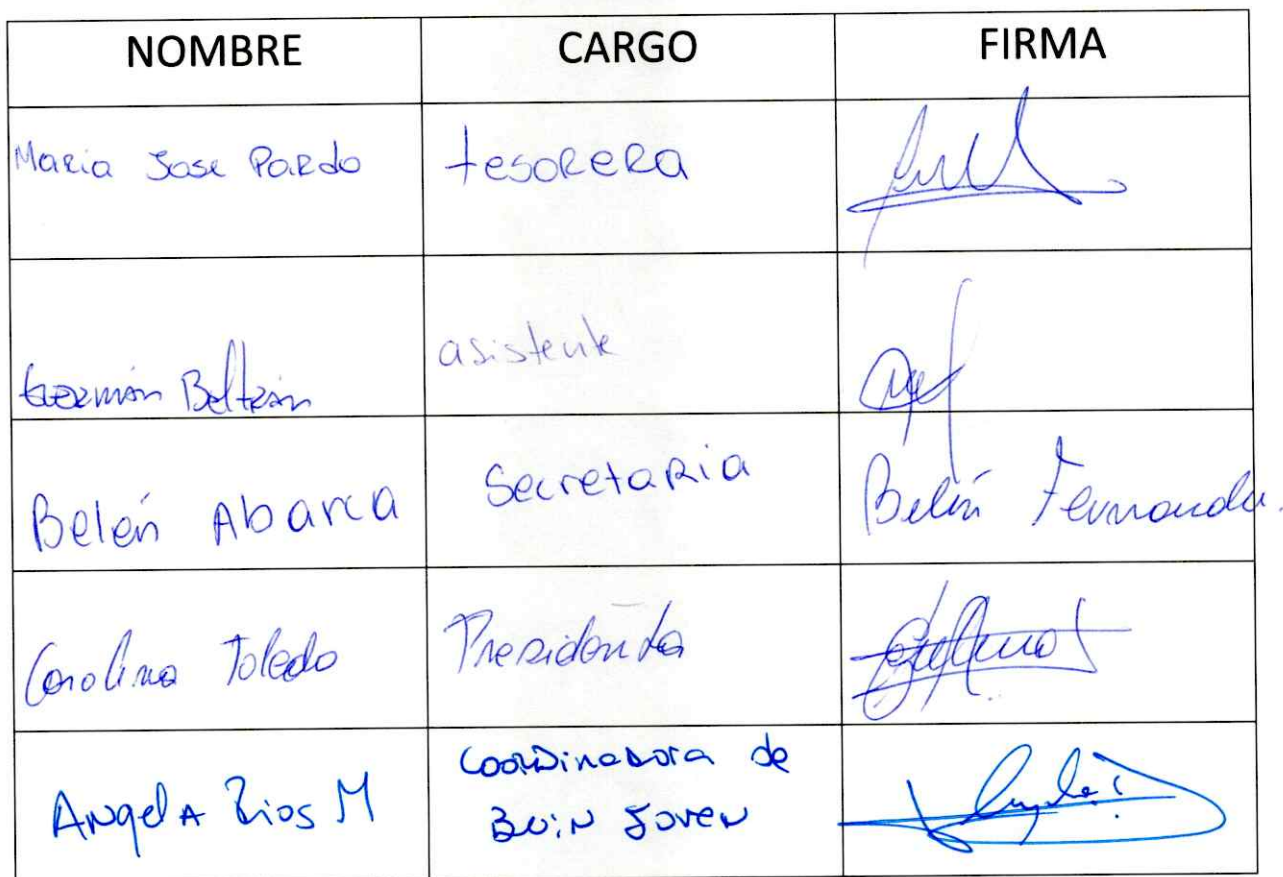 NOMBRE CARGO FIRMA
Maria Jose Pardo tesorera
Germán Beltrán asistente
Belén Abarca Secretaria Belén Fernanda.
Carolina Toledo Presidenta
Angela Rios M Coordinadora de
Buin Joven